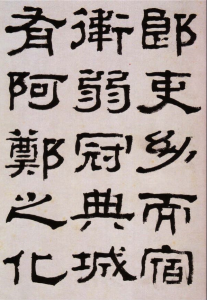 郎吏幼而宿
衛弱冠典城
有阿鄭之化